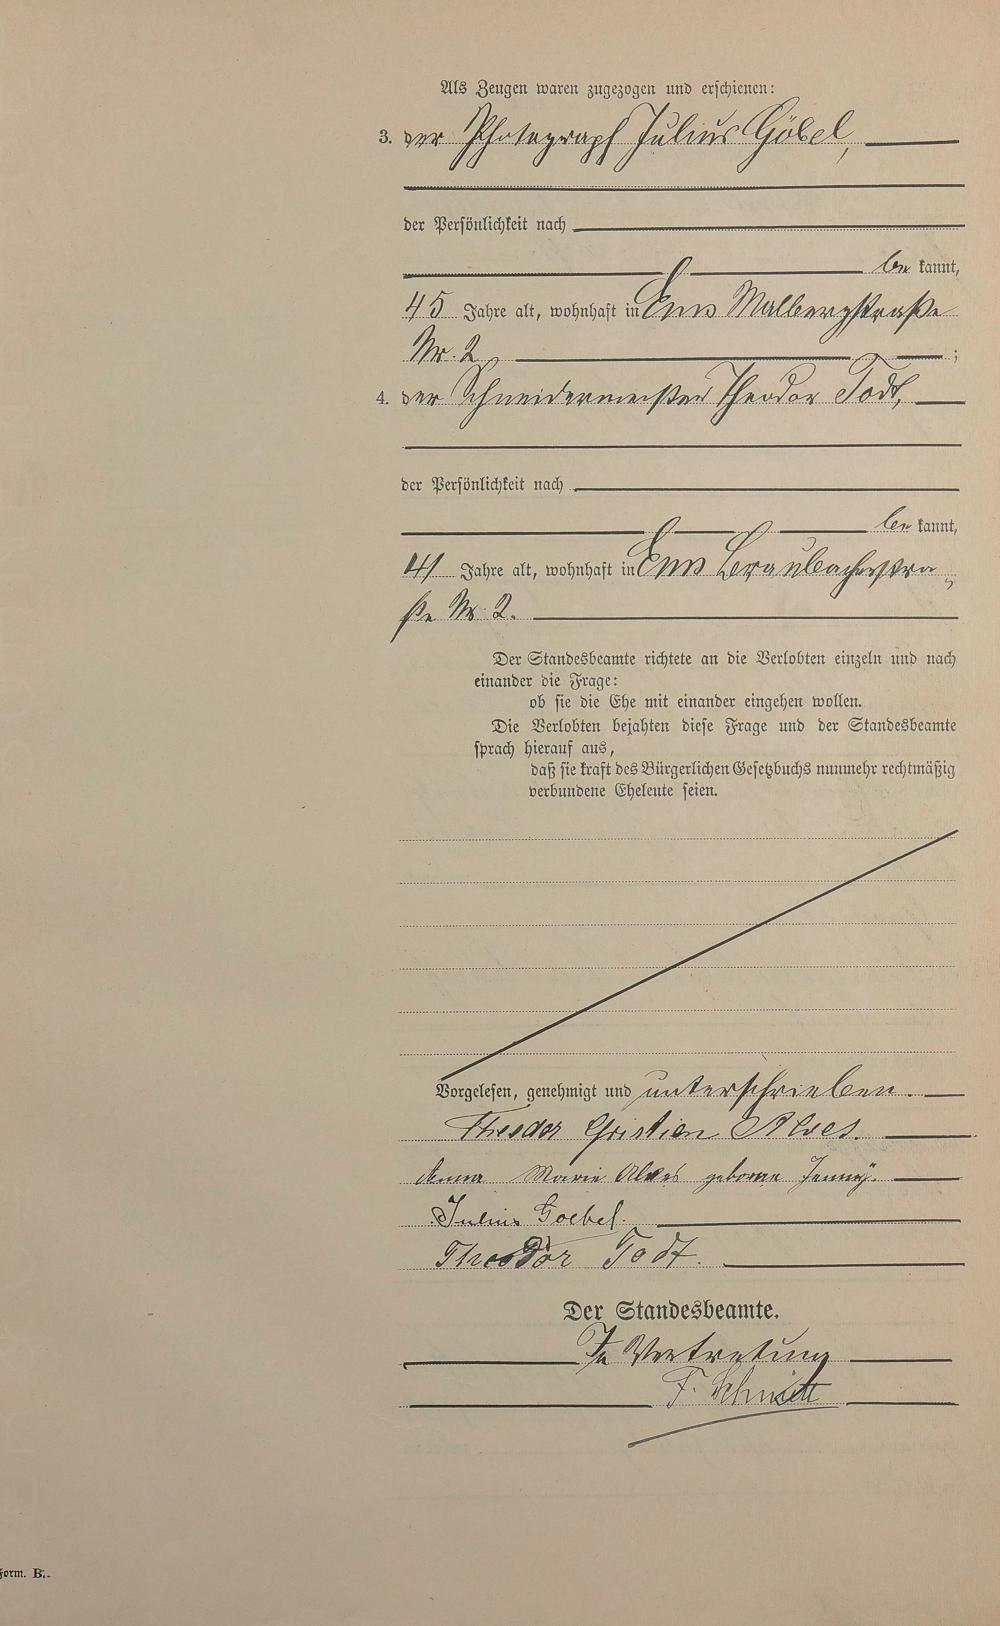 Als Zeugen waren zugezogen und erschienen:
3. der Photograph Julius Göbel,
der Persönlichkeit nach
be kannt,
45 Jahre alt, wohnhaft in Ems Malbergstraße
Nr. 2 ;
4. der Schneidermeister Theodor Todt,
der Persönlichkeit nach
be kannt,
41 Jahre alt, wohnhaft in Ems Braubacherstra-
ße Nr. 2.
Der Standesbeamte richtete an die Verlobten einzeln und nach
einander die Frage:
ob sie die Ehe mit einander eingehen wollen.
Die Verlobten bejahten diese Frage und der Standesbeamte
sprach hierauf aus,
daß sie kraft des Bürgerlichen Gesetzbuchs nunmehr rechtmäßig
verbundene Eheleute seien.
Vorgelesen, genehmigt und unterschrieben.
Theodor Christian Alves.
Anna Marie Alves geborne Jenny.
Julius Goebel.
Theodor Todt.
Der Standesbeamte.
In Vertretung
F. Schmitt
Form. B.